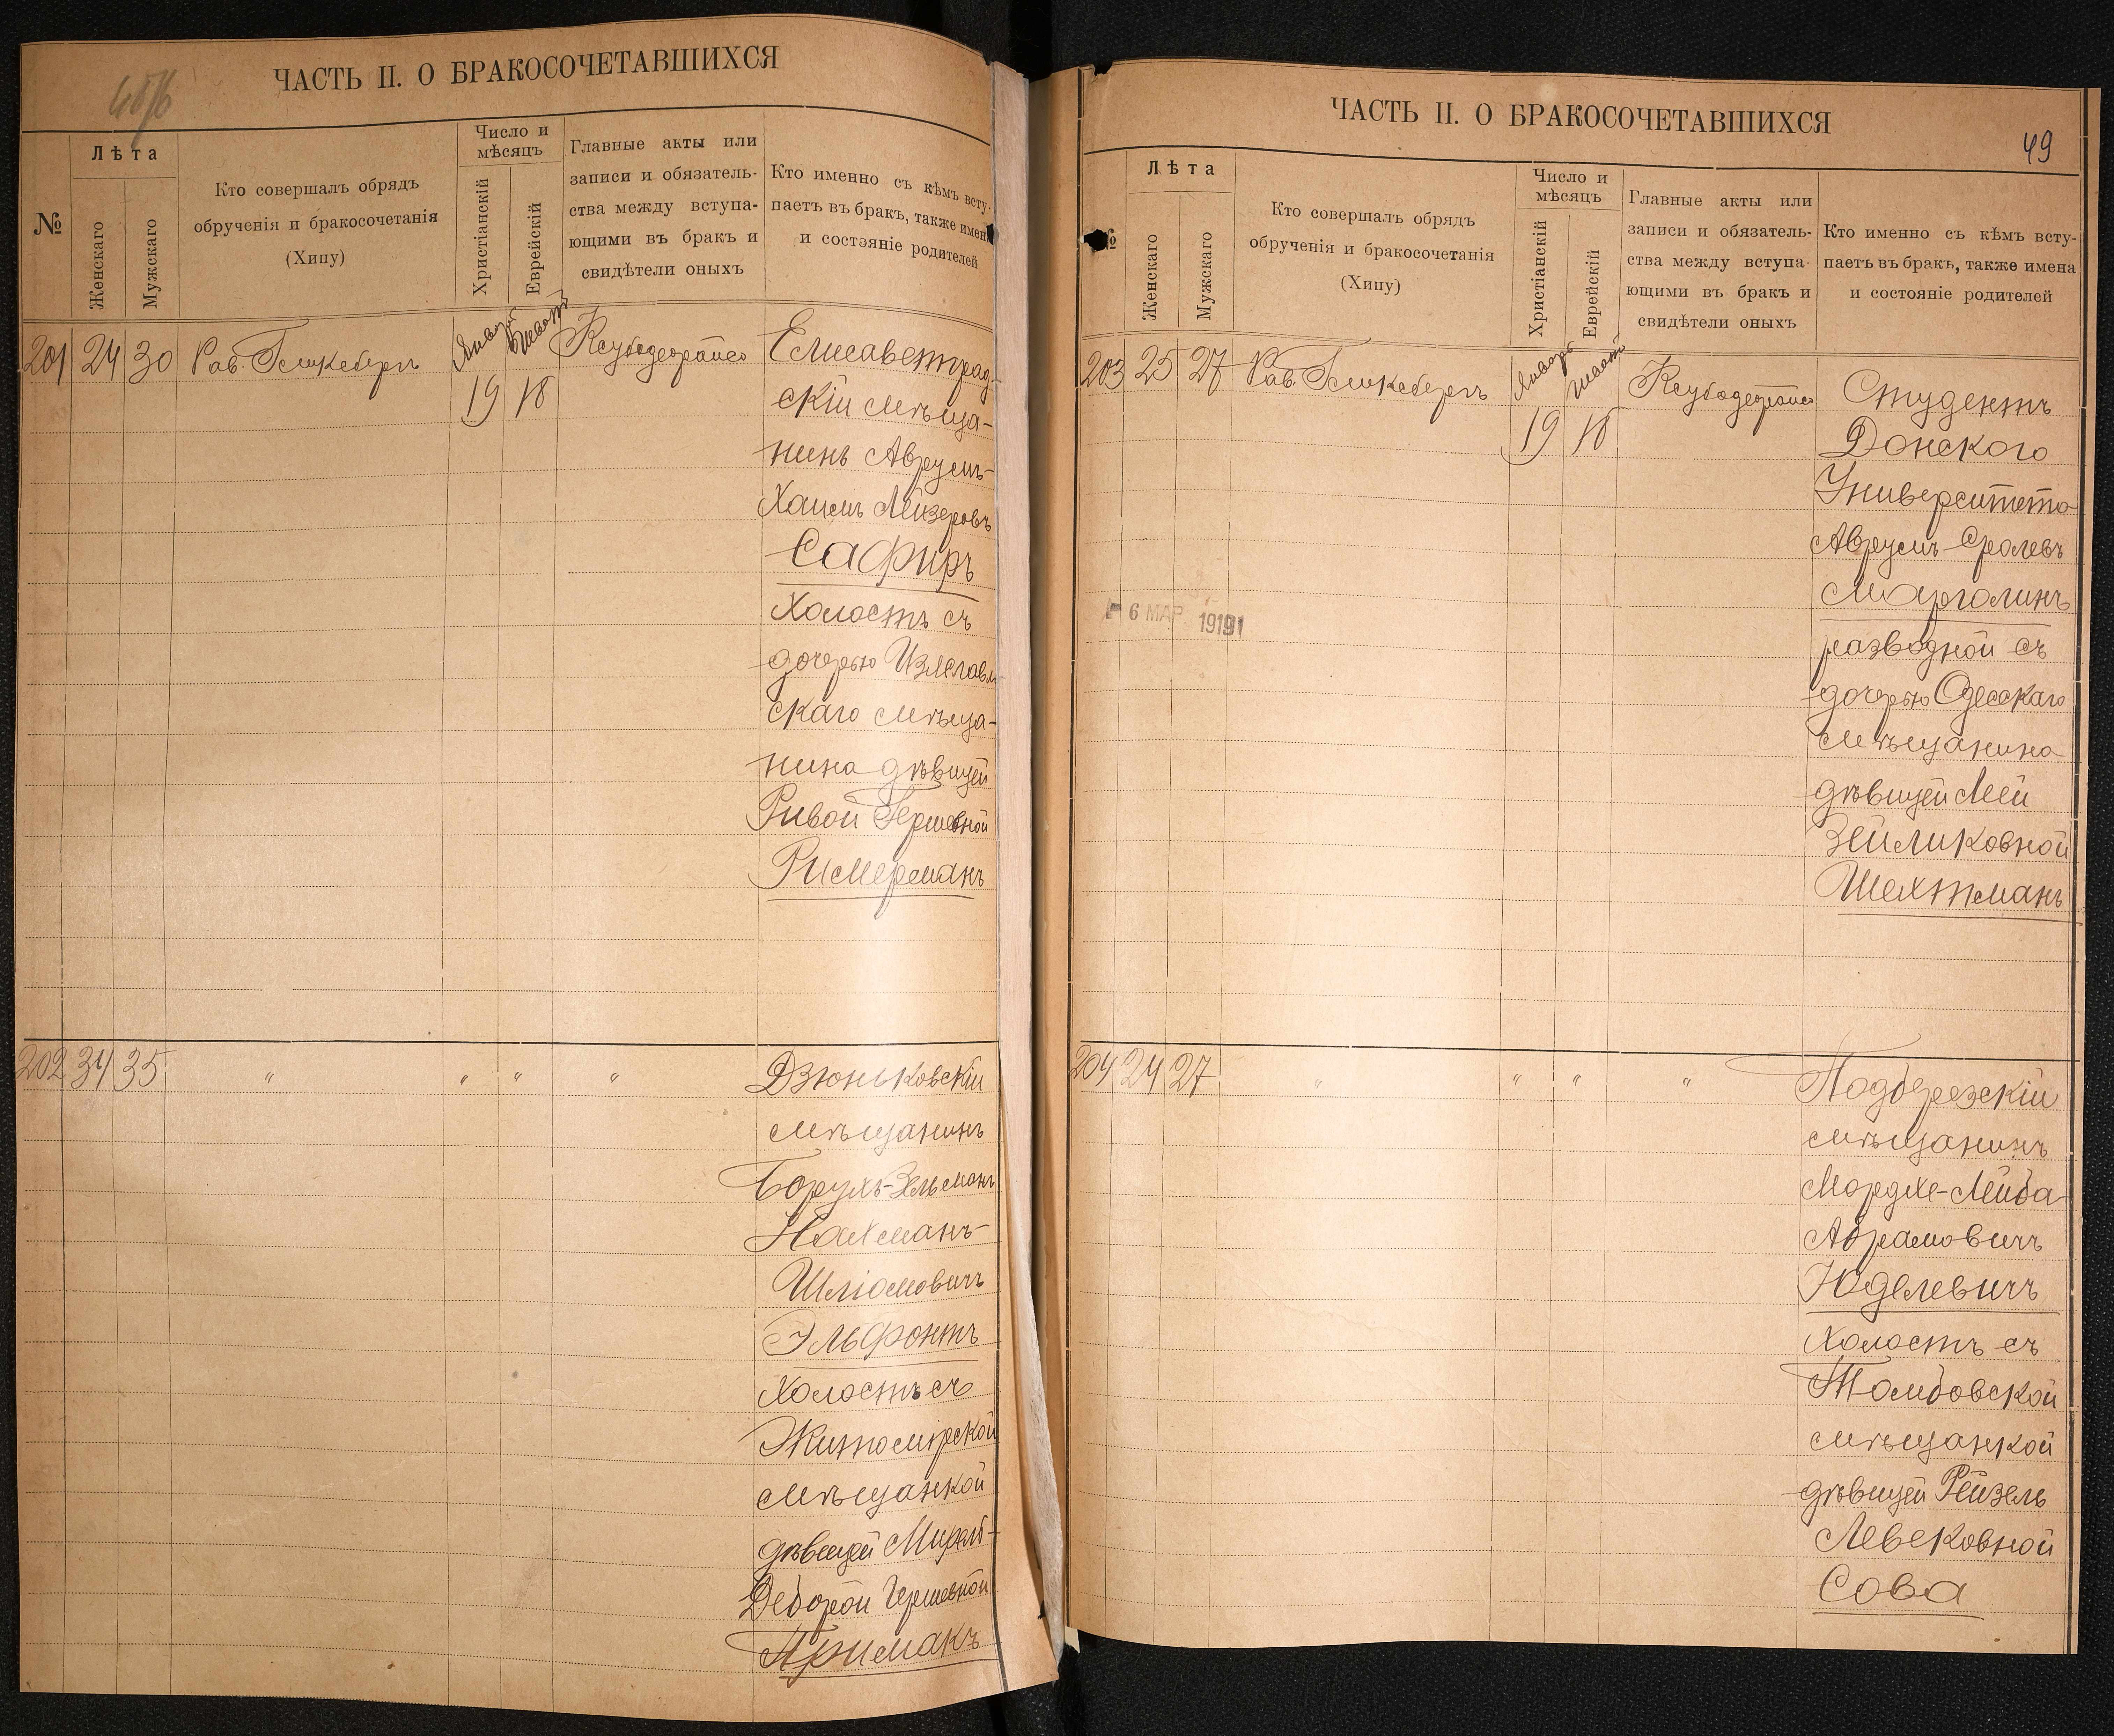 ЧАСТЬ II. О БРАКОСОЧЕТАВШИХСЯ
№
Лѣта
Женскаго
Мужскаго
Кто совершалъ обрядъ
обрученія и бракосочетанія
(Хипу)
Число и
мѣсяцъ
Христіанскій
Еврейскій
Главные акты или
записи и обязатель-
ства между вступа-
ющими въ бракъ и
свидѣтели оныхъ
Кто именно съ кѣмъ всту-
паетъ въ бракъ, также имен
и состояніе родителей
201 24 30 Рав. Гликсбергъ
Январ
Шват
19 18
Елисаветград-
скій мѣща-
нинъ Аврумъ-
Хаимъ Лейзеровъ
Сафиръ
Холостъ съ
дочерью Изяславл
скаго мѣща-
нина дѣвицей
Ривой Гершевной
Римерманъ
202 34 35 " " " "
Дзюньковскій
мѣщанинъ
Борухъ-Зельманъ
Нахманъ-
Шлiомовичъ
Эльфонтъ
Холостъ съ
Житомірской
мѣщанкой
дѣвицей
Деборой Гершевной
Примакъ
ЧАСТЬ II. О БРАКОСОЧЕТАВШИХСЯ
49
№
Лѣта
Женскаго
Мужскаго
Кто совершалъ обрядъ
обрученія и бракосочетанія
(Хипу)
Число и
мѣсяцъ
Христіанскій
Еврейскій
Главные акты или
записи и обязатель-
ства между вступа-
ющими въ бракъ и
свидѣтели оныхъ
Кто именно съ кѣмъ всту-
паетъ въ бракъ, также имена
и состояніе родителей
203 25 27 Рав. Гликсбергъ
Январ
Шват
19 18
Студентъ
Донского
Университета
Аврумъ-Сролевъ
Марголинъ
разводной съ
дочерью Одесскаго
мѣщанина
дѣвицей Леей
Зейликовной
Шехтманъ
6 МАР 1919
204 24 27 " " " "
Подберезскій
мѣщанинъ
Мордхе-Лейба
Абрамовичъ
Юделевичъ
Холостъ съ
Тамбовской
мѣщанкой
дѣвицей Рейзель
Левековной
Сова